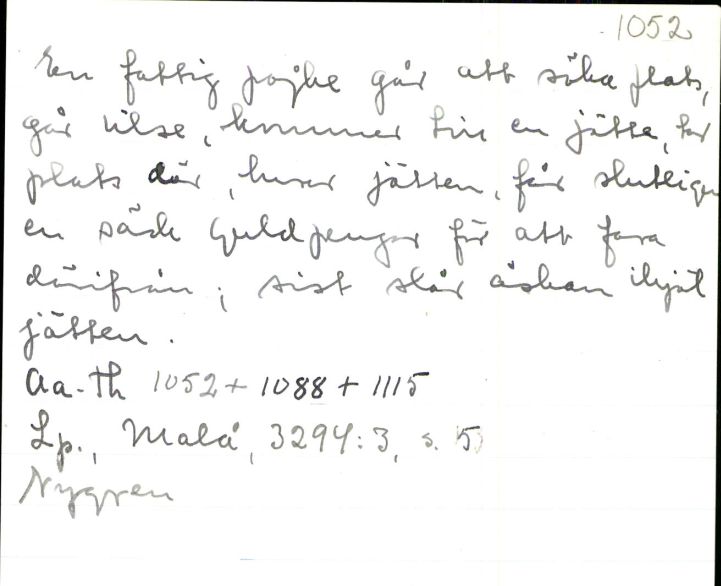 1052
En fattig pojke går att söka plats,
går vilse, kommer till en jätte, tar
plats där, lurar jätten, får slutligen
en säck guldpengar för att fara
därifrån; sist slår åskan ihjäl
jätten.
Aa-Th 1052 + 1088 + 1115
Lp., Malå, 3294:3, s. 5
Nygren